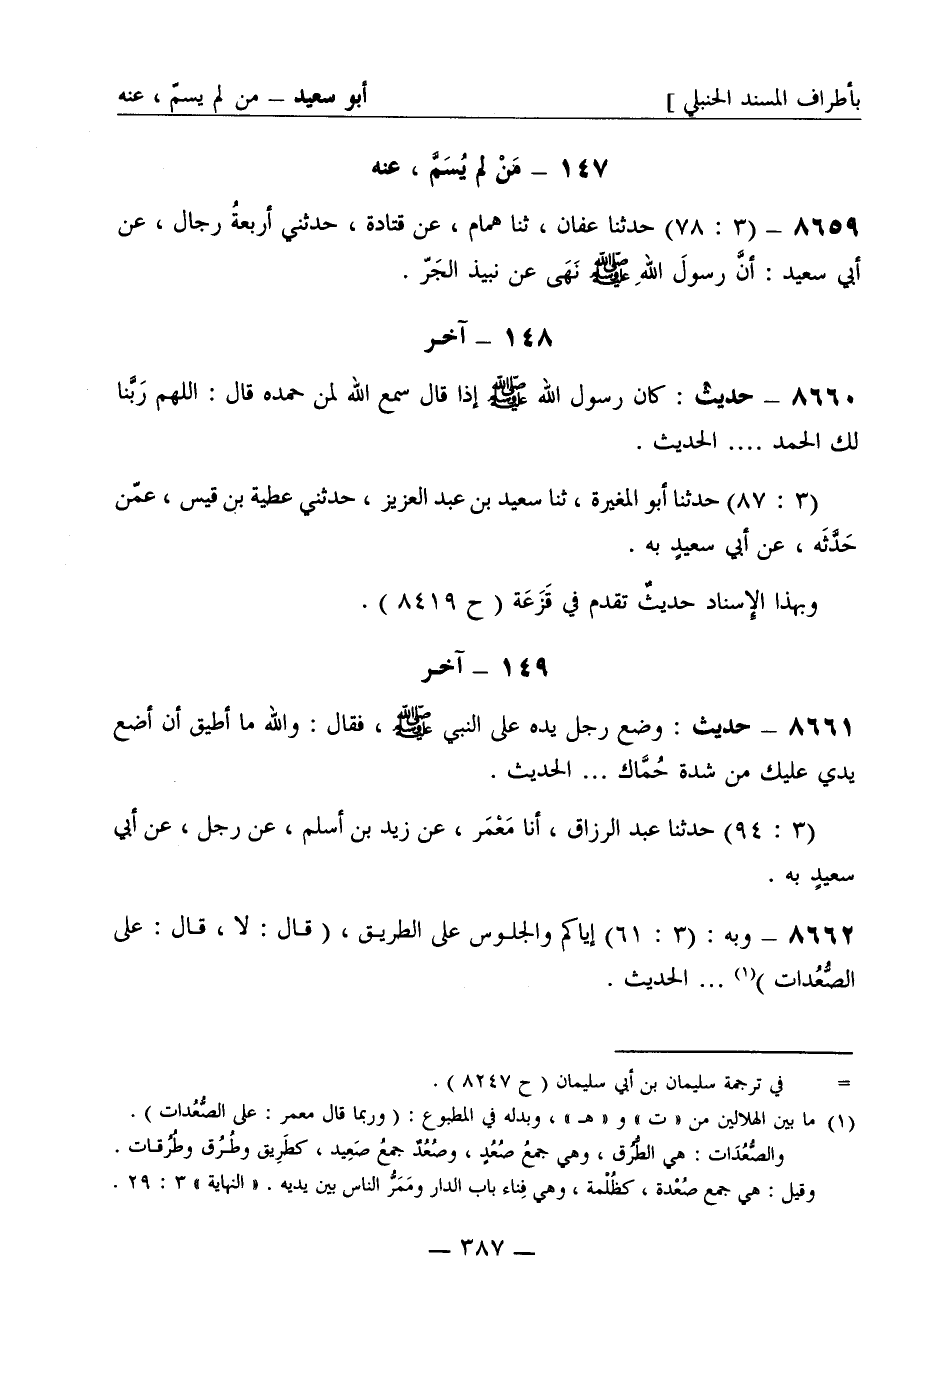 بأطراف المسند الحنبلي ] أبو سعيد – من لم يسمّ ، عنه
١٤٧ – مَنْ لم يُسَمَّ ، عنه
٨٦٥٩ – (٣ : ٧٨) حدثنا عفان ، ثنا همام ، عن قتادة ، حدثني أربعةُ رجال ، عن
أبي سعيد : أنَّ رسولَ اللهِ ﷺ نَهَى عن نبيذ الجَرّ .
١٤٨ – آخـر
٨٦٦٠ – حديث : كان رسول الله ﷺ إذا قال سمع الله لمن حمده قال : اللهم رَبَّنا
لك الحمد .... الحديث .
(٣ : ٨٧) حدثنا أبو المغيرة ، ثنا سعيد بن عبد العزيز ، حدثني عطية بن قيس ، عمّن
حَدَّثَه ، عن أبي سعيدٍ به .
وبهذا الإسناد حديثٌ تقدم في قَزَعَة ( ح ٨٤١٩ ) .
١٤٩ – آخـر
٨٦٦١ – حديث : وضع رجل يده على النبي ﷺ ، فقال : والله ما أطيق أن أضع
يدي عليك من شدة حُمَّاك ... الحديث .
(٣ : ٩٤) حدثنا عبد الرزاق ، أنا مَعْمَر ، عن زيد بن أسلم ، عن رجل ، عن أبي
سعيدٍ به .
٨٦٦٢ – وبه : (٣ : ٦١) إياكم والجلـوس على الطريـق ، ( قـال : لا ، قـال : على
الصُّعُدات )(١) ... الحديث .
= في ترجمة سليمان بن أبي سليمان ( ح ٨٢٤٧ ) .
(١) ما بين الهلالين من « ت » و « هـ » ، وبدله في المطبوع : ( وربما قال معمر : على الصُّعُدات ) .
والصُّعُدَات : هي الطُّرُق ، وهي جمعُ صُعُدٍ ، وصُعُدٌ جمعُ صَعِيد ، كطَرِيق وطُـرُق وطُرُقـات .
وقيل : هي جمع صُعْدة ، كظُلْمة ، وهي فِناء باب الدار ومَمَرُّ الناس بين يديه . « النهاية » ٣ : ٢٩ .
– ٣٨٧ –